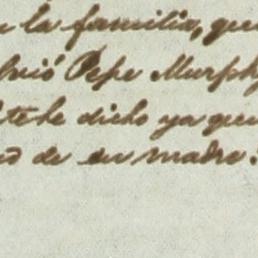 la familia, que
lvió Pepe Murphy
te he dicho ya que
de su madre.